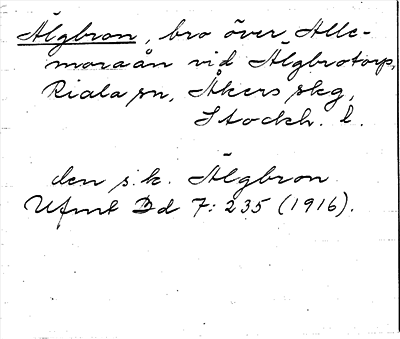 Älgbron, bro över Alle-
moraån vid Älgbrotorp,
Riala sn, Åkers skg,
Stockh. l.
den s.k. Älgbron
Ufmt Bd 7: 235 (1916).